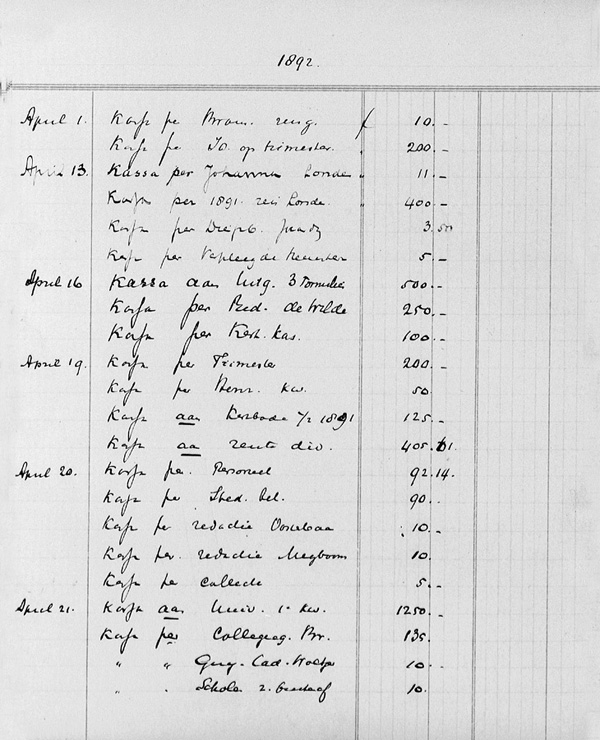 1892.
April 1. Kassa per Brom. reng. f 10.-
Kassa per Io. op trimester. " 200.-
April 13. Kassa per Johanna Londe " 11.-
Kassa per 1891. rei Londe. " 400.-
Kassa per 3.50
Kassa per 5.-
April 16 Kassa aan Uitg. 3 Formulier 500.-
Kassa per Pred. de Wilde 250.-
Kassa per Kerk. kas. 100.-
April 19. Kassa per Trimester 200.-
Kassa per kw. 50.
Kassa aan Kerkbode 1/2 1891 125.-
Kassa aa rente div. 405.61.
April 20. Kassa per. Personeel 92.14.
Kassa per Sted. bel. 90.-
Kassa per redactie 10.-
Kassa per. redactie Meyboom 10.
Kassa per collecte 5.-
April 21. Kassa aan Univ. 1e kw. 1250.-
Kassa per Collegeg. Br. 135.
" " Guy. Cad. 10.-
" " Schole 10.